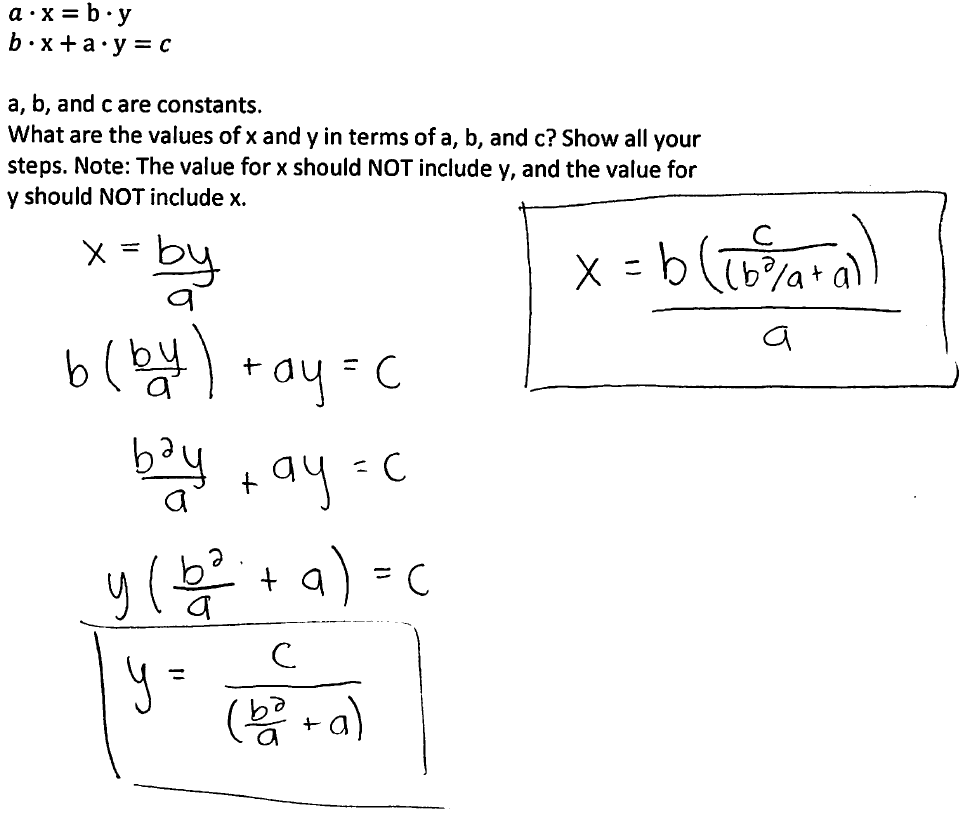 a · x = b · y
b · x + a · y = c
a, b, and c are constants.
What are the values of x and y in terms of a, b, and c? Show all your
steps. Note: The value for x should NOT include y, and the value for
y should NOT include x.
x = by/a
b(by/a) + ay = c
b²y/a + ay = c
y(b²/a + a) = c
y = c/(b²/a + a)
x = b(c/(b²/a + a))/a